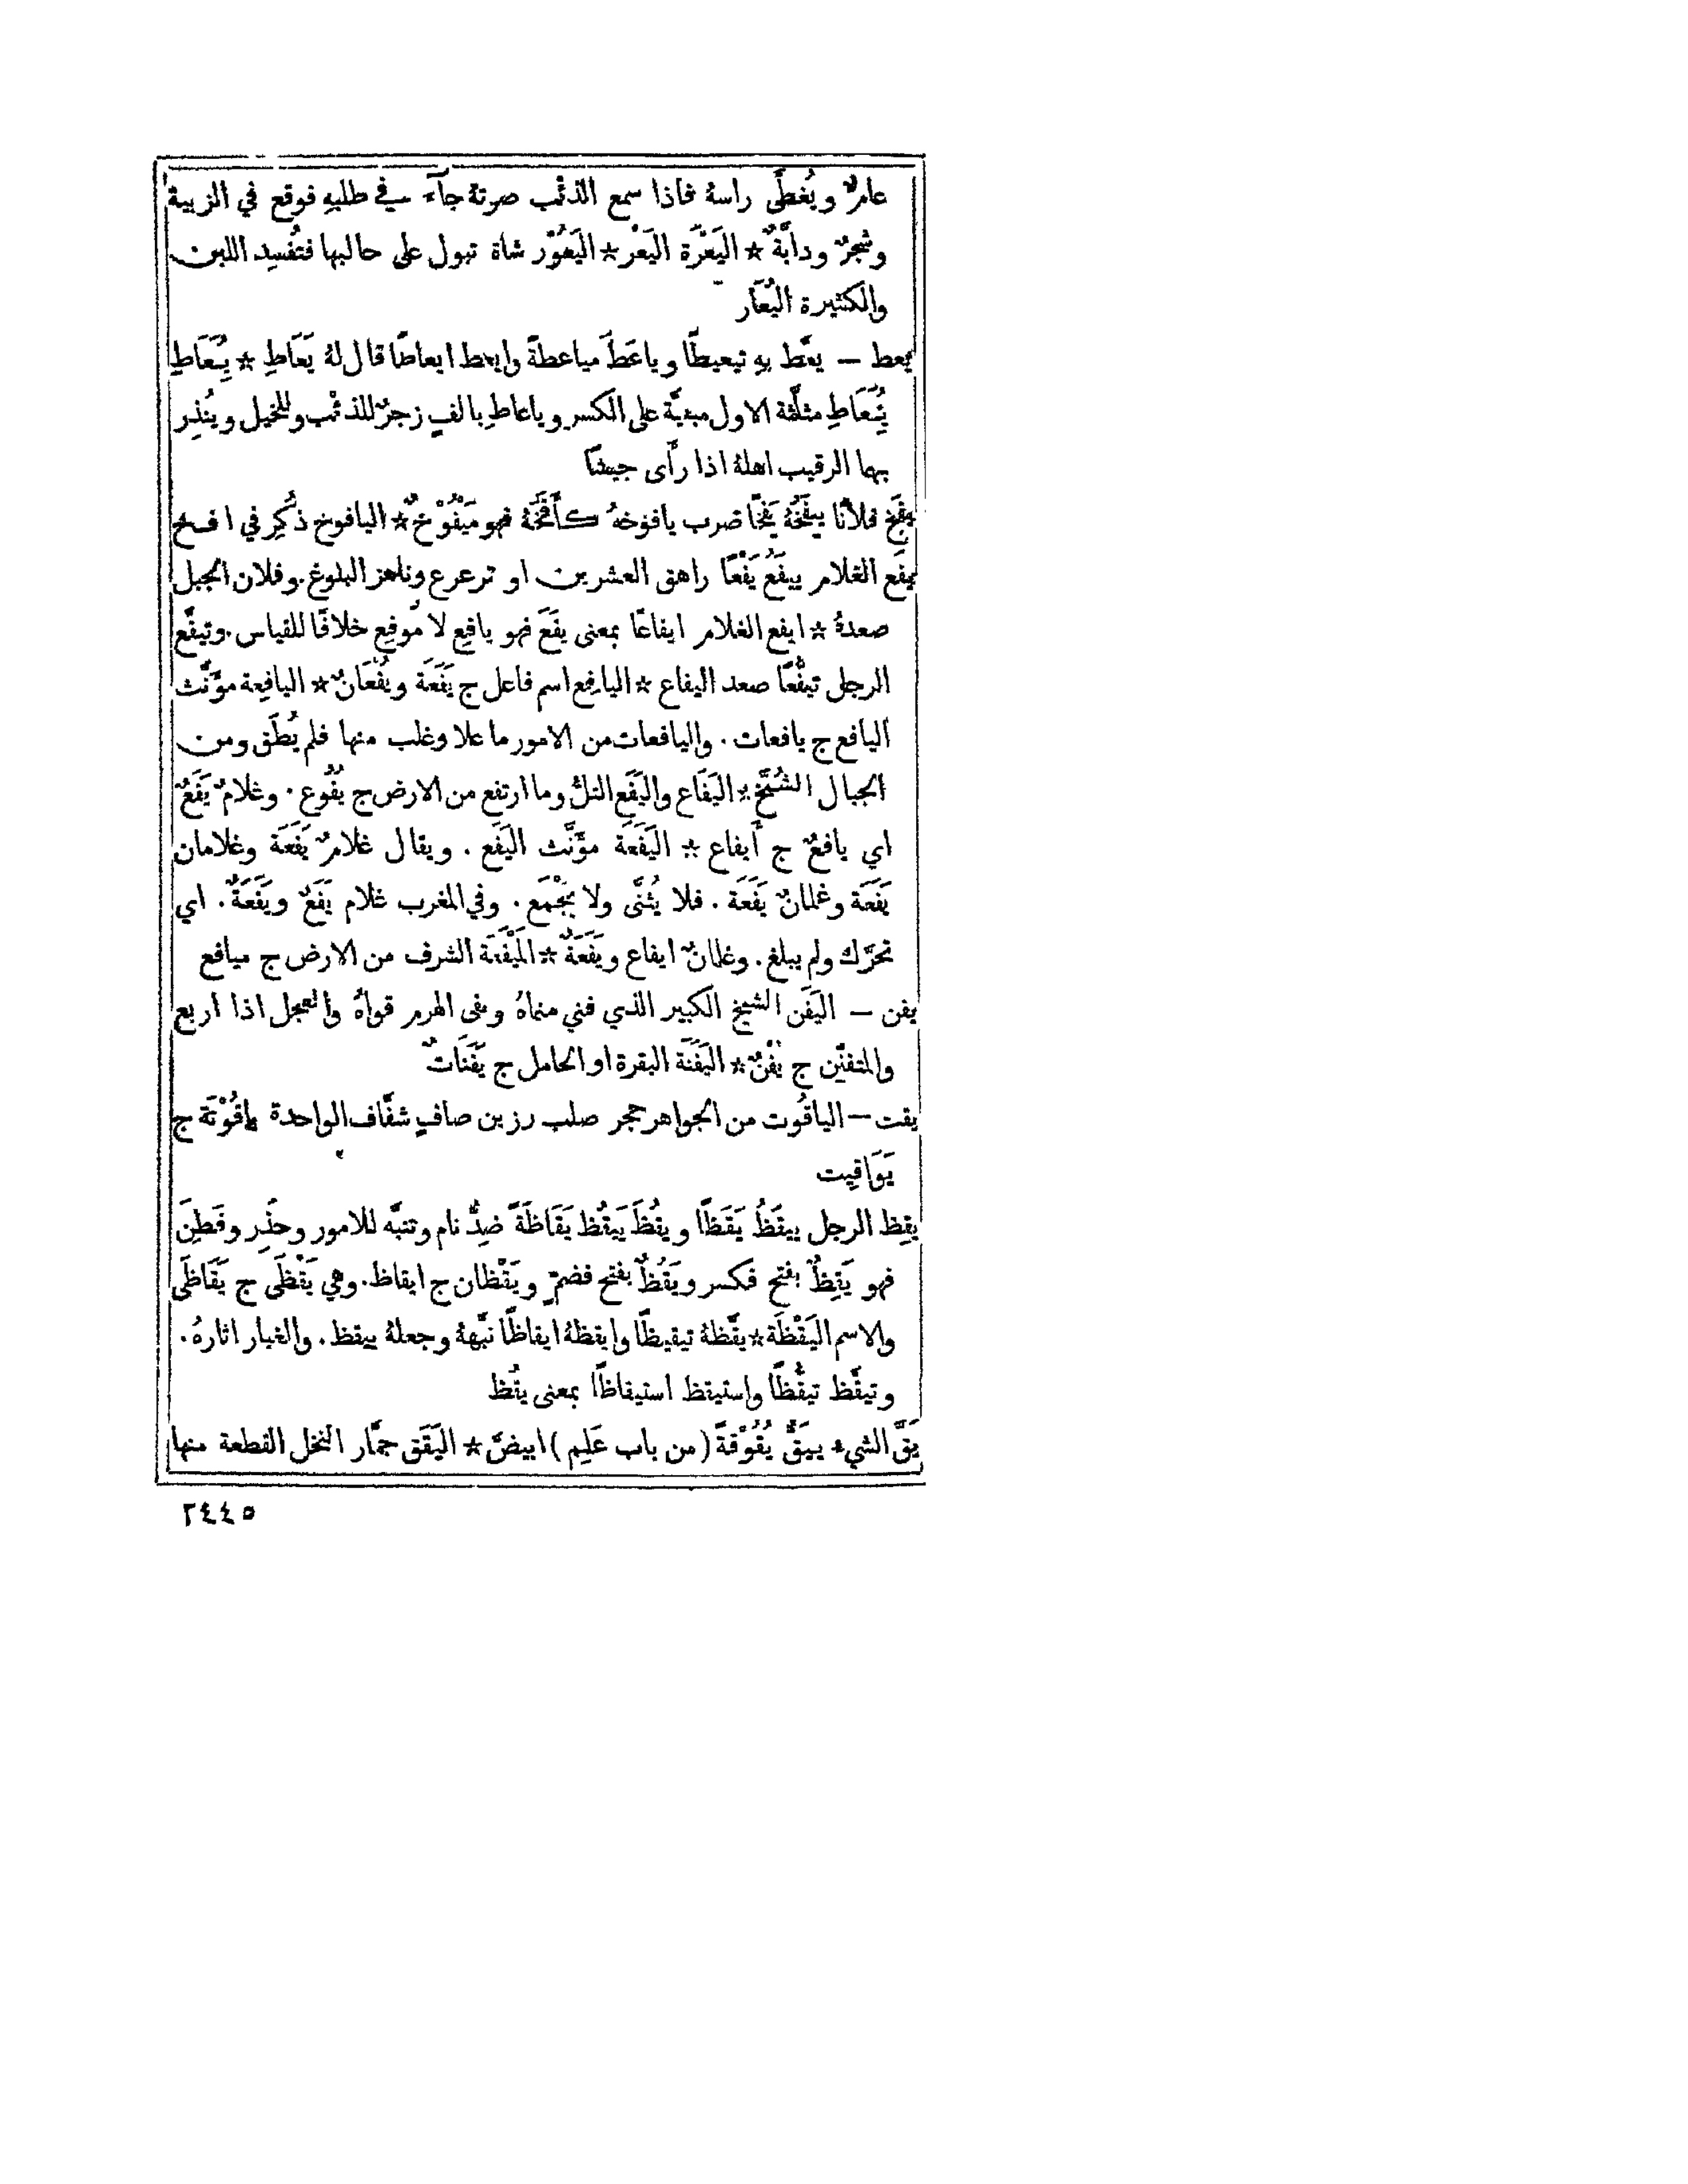 عامرٌ ويُغطَّى راسهُ فاذا سمع الذئب صوتهُ جآءَ في طلبهِ فوقع في الزبية
وشجرٌ ودابَّةٌ * اليَعْرَة اليَعْر * اليَعُوْر شاة تبول على حالبها فتُفسِد اللبن
والكثيرة اليُعَار
يعط – يعَّط بهِ تيعيطًا وياعَطَ مياعطةً وايعط ايعاطًا قال لهُ يَعَاطِ * يِـَعَاطِ
يُِـَعَاطِ مثلَّثة الاول مبنيَّة على الكسر وياعاطِ بالفٍ زجرٌ للذئب وللخيل ويُنذِر
بها الرقيب اهلهُ اذا رأَى جيشًا
يفَخ فلانًا ييفَخُهُ يَفْخًا ضرب يافوخهُ كأَفَخَهُ فهو مَيْفُوْخٌ * اليافوخ ذُكِر في ا ف خ
يفَع الغلام ييفَعُ يَفْعًا راهق العشرين او ترعرع وناهز البلوغ. وفلان الجبل
صعدهُ * ايفع الغلام ايفاعًا بمعنى يفَعَ فهو يافِع لا مُوفِع خلافًا للقياس. وتيفَّع
الرجل تيفُّعًا صعد اليفاع * اليافِع اسم فاعل ج يَفَعَة ويُفْعَانٌ * اليافِعة مؤَنَّث
اليافع ج يافعات. واليافعات من الامور ما علا وغلب منها فلم يُطَق ومن
الجبال الشُمَّخ * اليَفَاع واليَفَع التلّ وما ارتفع من الارض ج يُفُوع. وغلامٌ يَفَعٌ
اي يافعٌ ج أَيفاع * اليَفَعَة مؤَنَّث اليَفَع. ويقال غلامٌ يَفَعَة وغلامان
يَفَعَة وغلمانٌ يَفَعَة. فلا يُثنَّى ولا يُجْمَع. وفي المغرب غلام يَفَعٌ ويَفَعَةٌ. اي
تحرَّك ولم يبلغ. وغلمانٌ ايفاع ويَفَعَةٌ * المَيْفَعَة الشرف من الارض ج ميافع
يفن – اليَفَن الشيخ الكبير الذي فني منهاهُ الهرم قواهُ والعجل اذا اربع
والمتفنّن ج يُفْنٌ * اليَفَنَة البقرة او الحامل ج يَفَنَاتٌ
يقت – الياقُوت من الجواهر حجر صلب رزين صافٍ شفَّاف الواحدة ياقُوْتَة ج
يَوَاقِيت
يقِظ الرجل ييقَظُ يَقَظًا ويقُظَ يَيقُظ يَقَاظَةً ضدُّ نام وتنبَّه للامور وحذِر وفَطِنَ
فهو يَقِظٌ بفتح فكسر ويَقُظٌ بفتح فضمّ ويَقْظان ج ايقاظ. وهي يَقْظَى ج يَقَاظَى
والاسم اليَقْظَة * يقَّظهُ تيقيظًا وايقظهُ ايقاظًا نبَّههُ وجعلهُ ييقظ. والغبار اثارهُ.
وتيقَّظ تيقُّظًا واستيقظ استيقاظًا بمعنى يقُظ
يَقَّ الشيء يَيَقُّ يُقُوْقَةً (من باب عَلِم) ابيضَّ * اليَقَق جمَّار النخل القطعة منها
٢٤٤٥